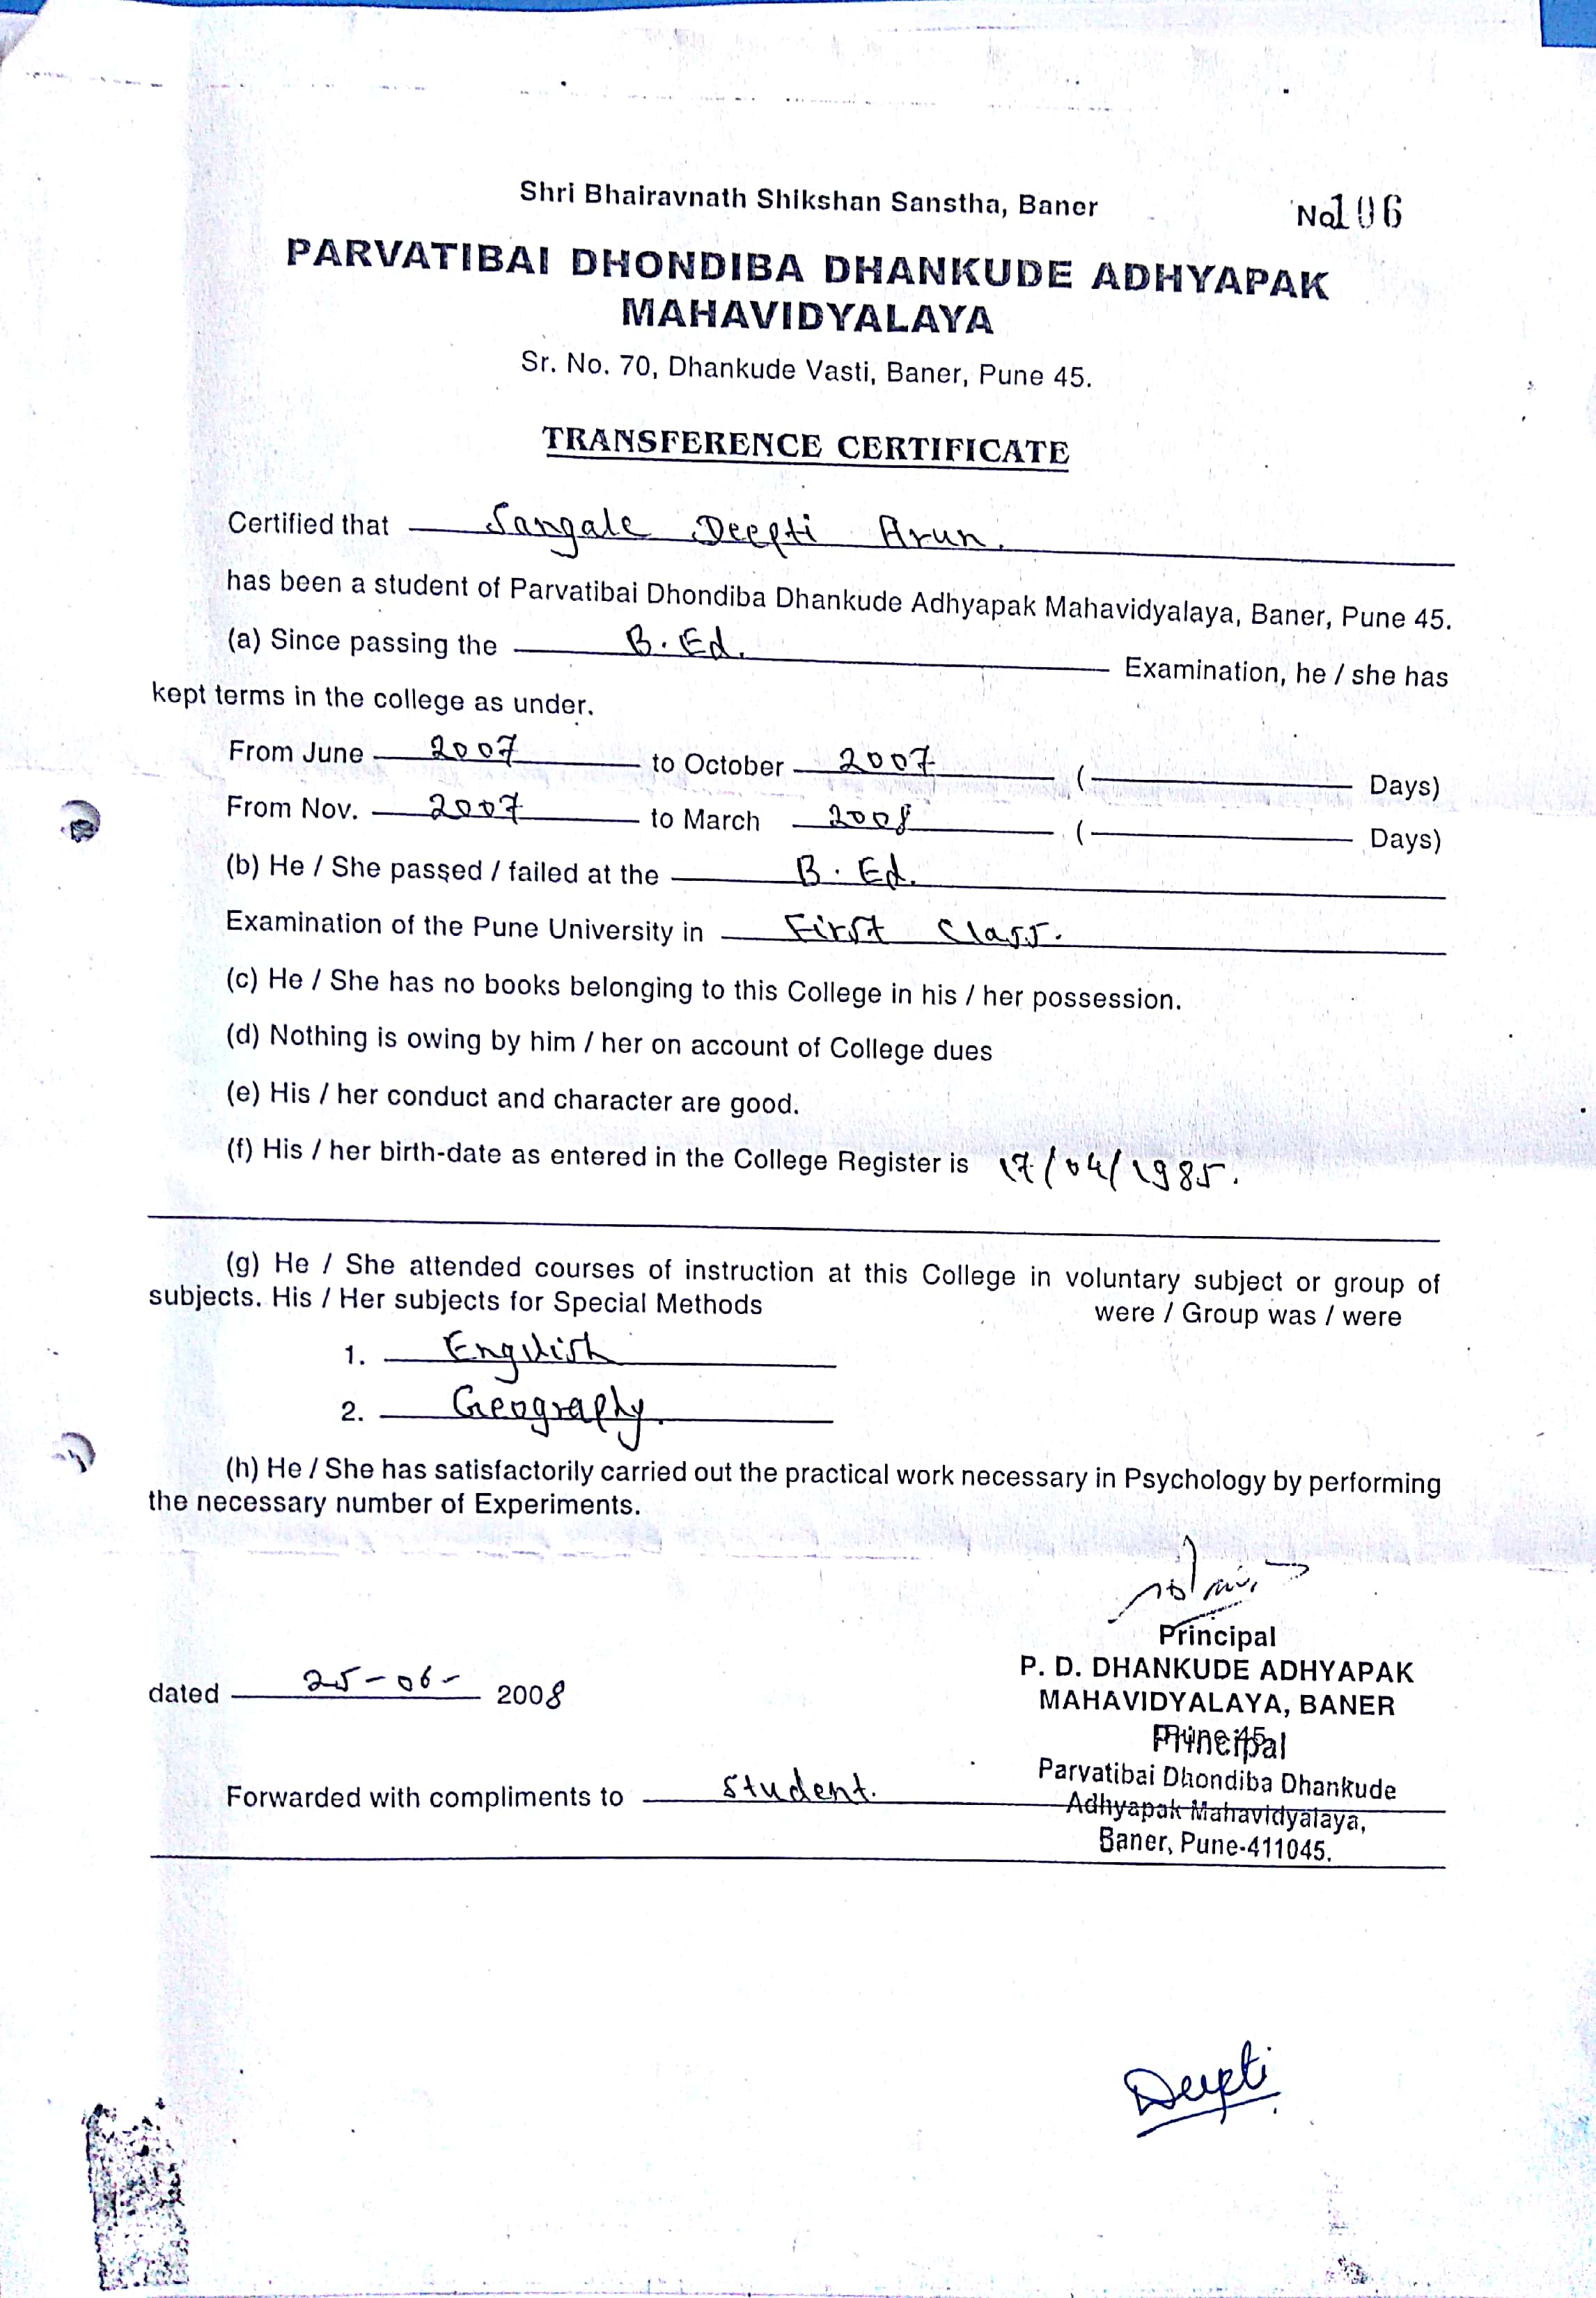 Shri Bhairavnath Shikshan Sanstha, Baner
No 106
PARVATIBAI DHONDIBA DHANKUDE ADHYAPAK
MAHAVIDYALAYA
Sr. No. 70, Dhankude Vasti, Baner, Pune 45.
TRANSFERENCE CERTIFICATE
Certified that Sangale Deepti Arun.
has been a student of Parvatibai Dhondiba Dhankude Adhyapak Mahavidyalaya, Baner, Pune 45.
(a) Since passing the B. Ed. Examination, he / she has
kept terms in the college as under.
From June 2007 to October 2007 ( Days)
From Nov. 2007 to March 2008 ( Days)
(b) He / She passed / failed at the B. Ed.
Examination of the Pune University in First Class.
(c) He / She has no books belonging to this College in his / her possession.
(d) Nothing is owing by him / her on account of College dues
(e) His / her conduct and character are good.
(f) His / her birth-date as entered in the College Register is 17/04/1985.
(g) He / She attended courses of instruction at this College in voluntary subject or group of
subjects. His / Her subjects for Special Methods were / Group was / were
1. English
2. Geography.
(h) He / She has satisfactorily carried out the practical work necessary in Psychology by performing
the necessary number of Experiments.
Principal
P. D. DHANKUDE ADHYAPAK
dated 25-06- 2008
MAHAVIDYALAYA, BANER
Principal
Parvatibai Dhondiba Dhankude
Forwarded with compliments to student.
Adhyapak Mahavidyalaya,
Baner, Pune-411045.
Deepti